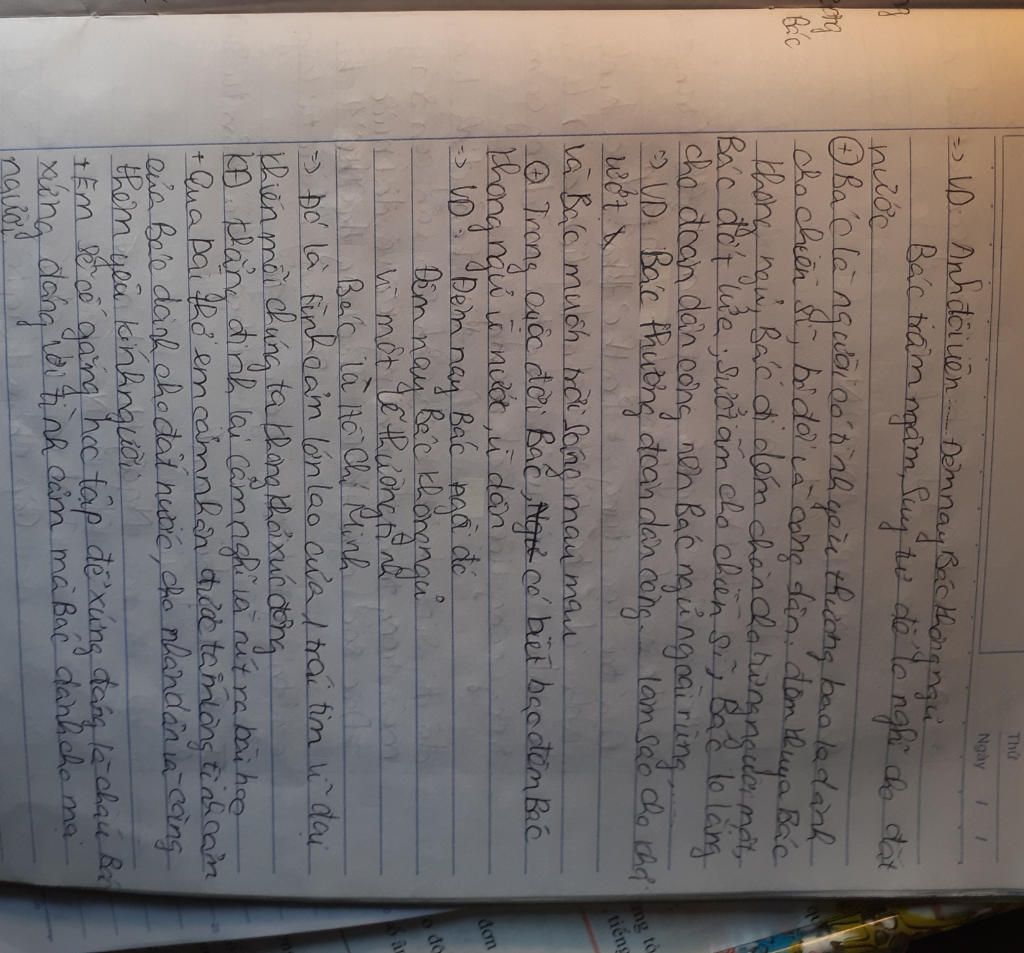 Thứ
Ngày / /
=> VD: Anh đội viên ..... Đêm nay Bác không ngủ
Bác trầm ngâm, suy tư để lo nghĩ cho đất
nước
(+) Bác là người có tình yêu thương bao la dành
cho chiến sĩ, bộ đội và công dân. đêm khuya Bác
không ngủ, Bác đi dém chăn cho từng người một,
Bác đốt lửa, sưởi ấm cho chiến sĩ, Bác lo lắng
cho đoàn dân công nên Bác ngủ ngoài rừng......
=> VD Bác thương đoàn dân công ... làm sao cho khỏi
ướt
và Bác muốn trời sáng mau mau
(+) Trong cuộc đời Bác, có biết bao đêm Bác
không ngủ vì nước, vì dân
=> VD: Đêm nay Bác ngồi đó
Đêm nay Bác không ngủ
Vì một lẽ thường tình
Bác là Hồ Chí Minh
=> Đó là tình cảm lớn lao của 1 trái tim vĩ đại
khiến mỗi chúng ta không khỏi xúc động
(+) Khẳng định lại cảm nghĩ và rút ra bài học
+ Qua bài thơ em cảm nhận được tấm lòng tình cảm
của Bác dành cho đất nước, cho nhân dân và càng
thêm yêu kính người
+ Em sẽ cố gắng học tập để xứng đáng là cháu Bác
xứng đáng với tình cảm mà Bác dành cho mọi
người
ộng
Bác